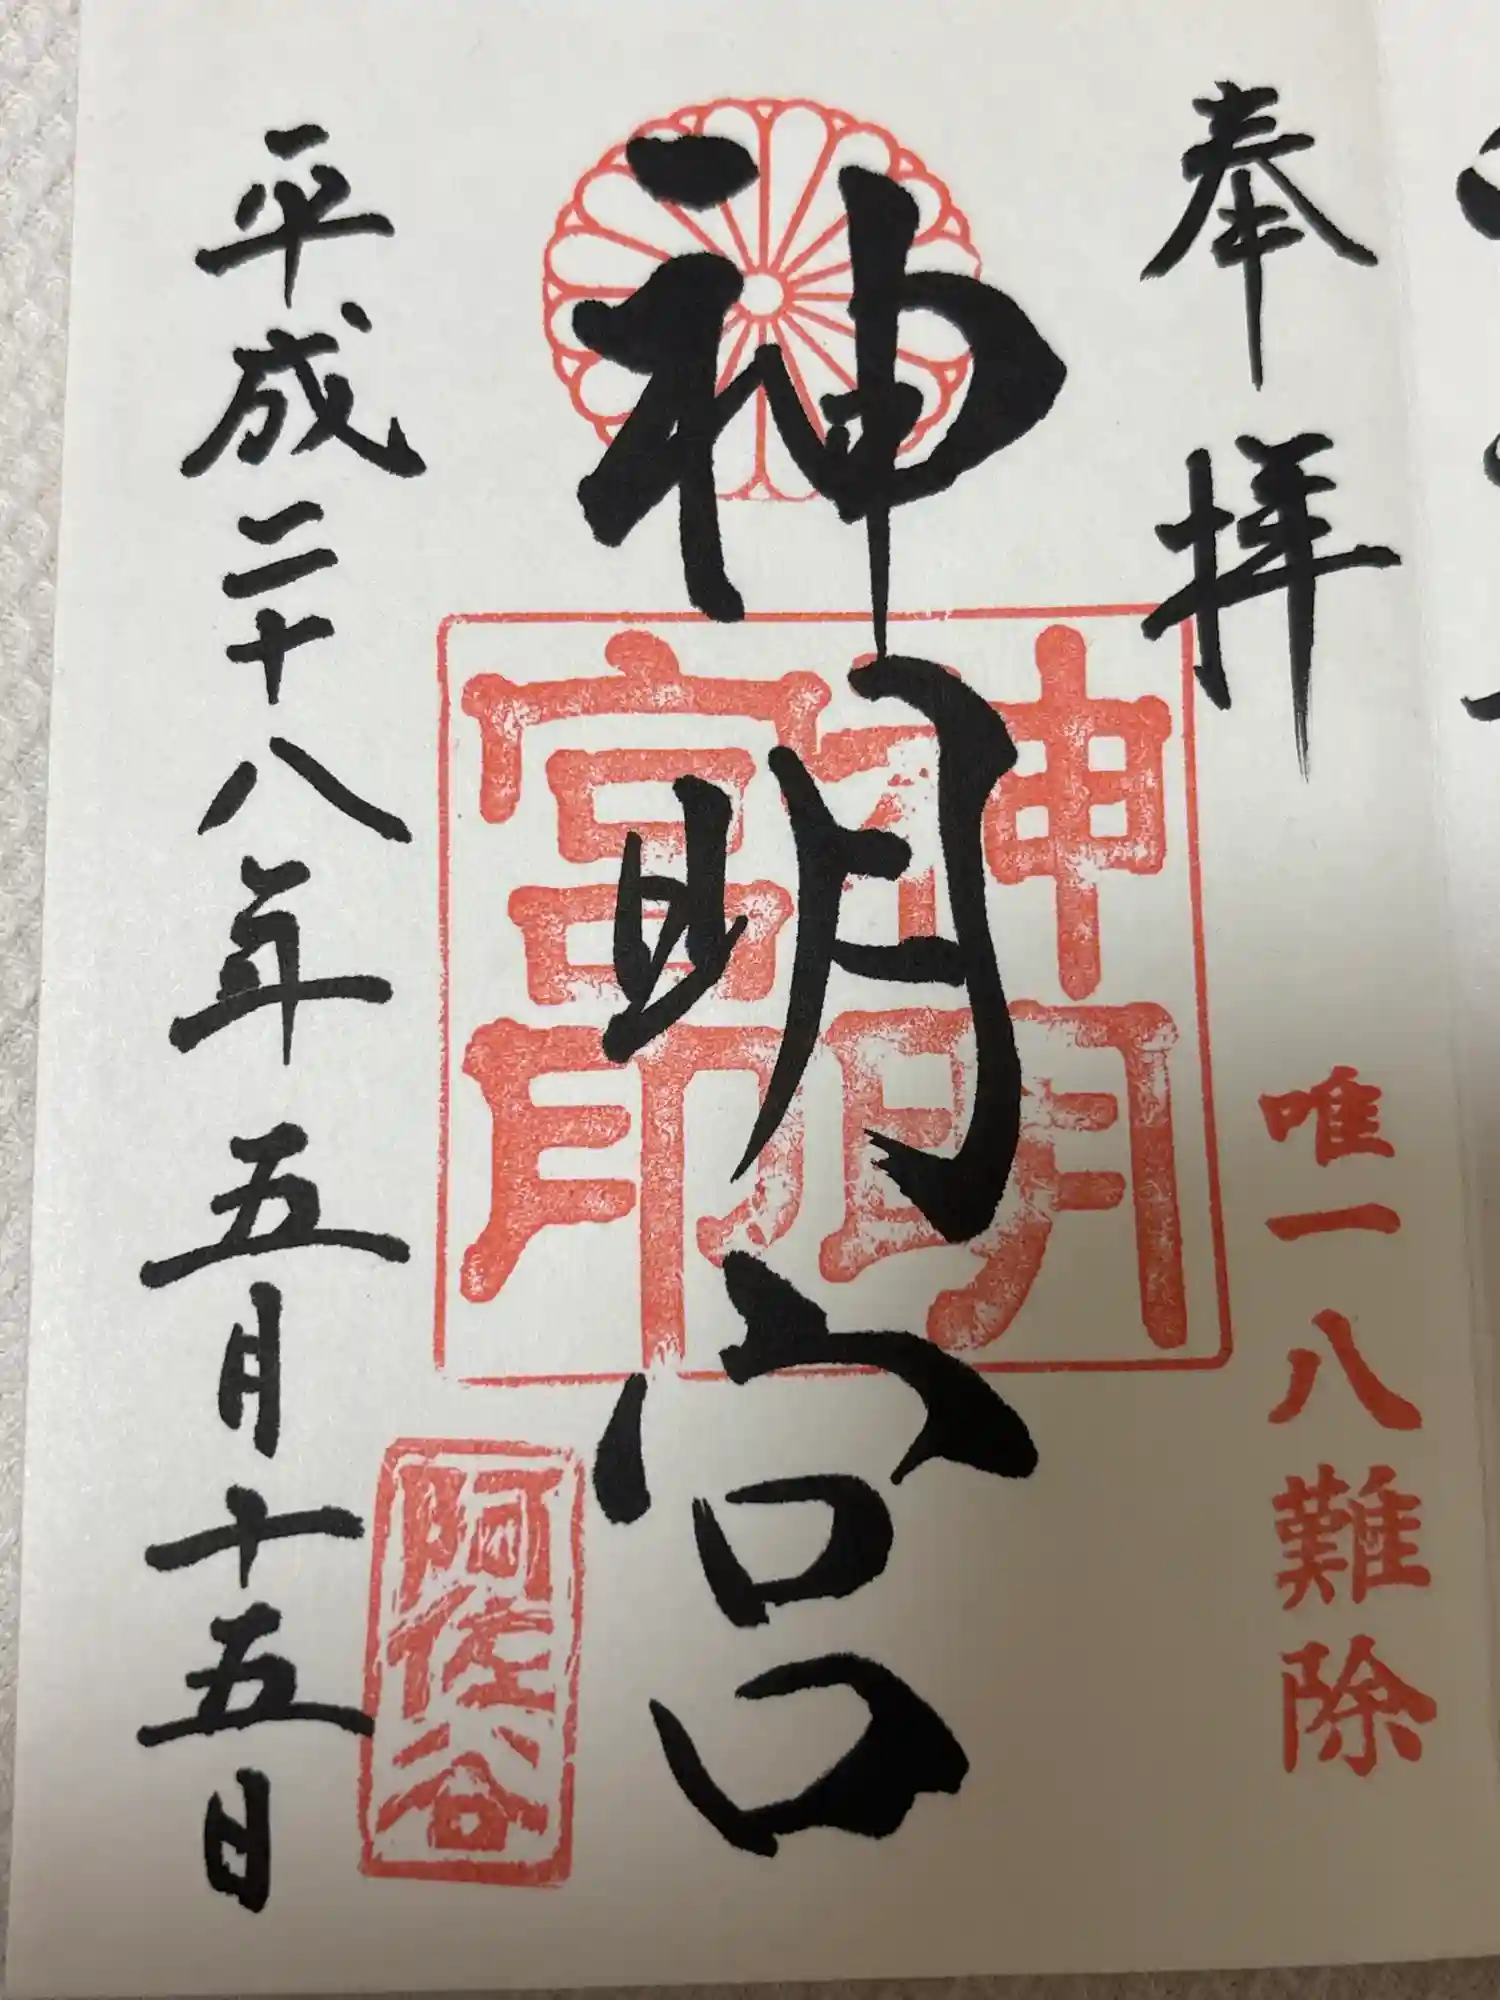 奉拝
唯一八難除
神明宮
神明宮印
阿佐谷
平成二十八年五月十五日